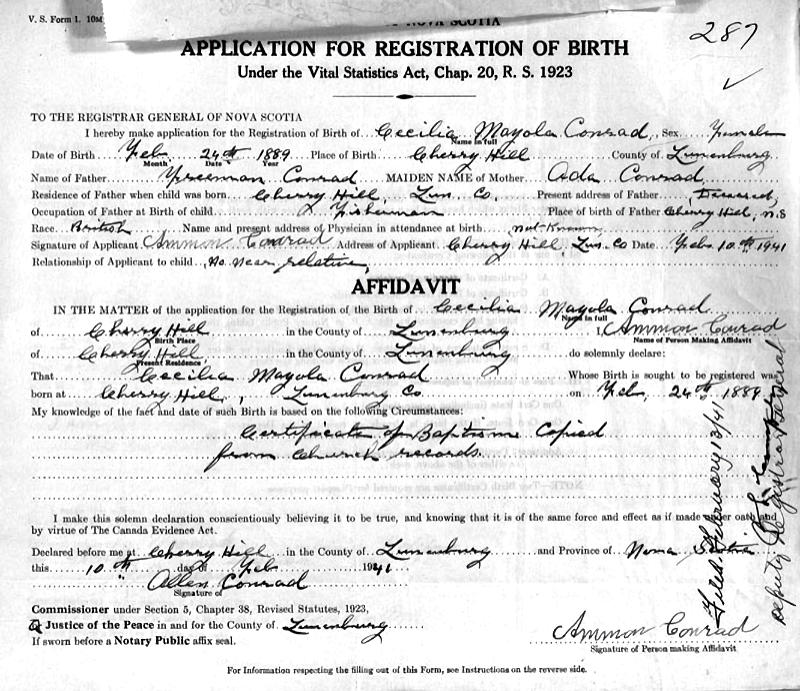 V. S. Form 1. 10M
NOVA SCOTIA
287
APPLICATION FOR REGISTRATION OF BIRTH
Under the Vital Statistics Act, Chap. 20, R. S. 1923
TO THE REGISTRAR GENERAL OF NOVA SCOTIA
I hereby make application for the Registration of Birth of Cecilia Mayola Conrad, Sex Female
Name in full
Date of Birth Feb. 24th 1889 Place of Birth Cherry Hill County of Lunenburg
Month Date Year
Name of Father Freeman Conrad MAIDEN NAME of Mother Ada Conrad
Residence of Father when child was born Cherry Hill, Lun. Co. Present address of Father, Deceased,
Occupation of Father at Birth of child Fisherman Place of birth of Father Cherry Hill, N.S
Race British Name and present address of Physician in attendance at birth not Known
Signature of Applicant Ammon Conrad Address of Applicant Cherry Hill, Lun. Co Date Feb. 10th 1941
Relationship of Applicant to child No near relative,
AFFIDAVIT
IN THE MATTER of the application for the Registration of the Birth of Cecilia Mayola Conrad
Name in full
of Cherry Hill in the County of Lunenburg I, Ammon Conrad
Birth Place Name of Person Making Affidavit
of Cherry Hill, in the County of Lunenburg do solemnly declare:
Present Residence
That Cecilia Mayola Conrad Whose Birth is sought to be registered was
born at Cherry Hill, Lunenburg Co on Feb, 24th 1889
My knowledge of the fact and date of such Birth is based on the following Circumstances:
Certificate of Baptism Copied
from Church records.
I make this solemn declaration conscientiously believing it to be true, and knowing that it is of the same force and effect as if made under oath and
by virtue of The Canada Evidence Act.
Declared before me at Cherry Hill in the County of Lunenburg and Province of Nova Scotia
this 10th day of Feb 1941
Allen Conrad
Signature of
Commissioner under Section 5, Chapter 38, Revised Statutes, 1923,
Justice of the Peace in and for the County of Lunenburg
If sworn before a Notary Public affix seal.
Ammon Conrad
Signature of Person making Affidavit
For Information respecting the filling out of this Form, see Instructions on the reverse side.
Filed February 13/41
Deputy Registrar General